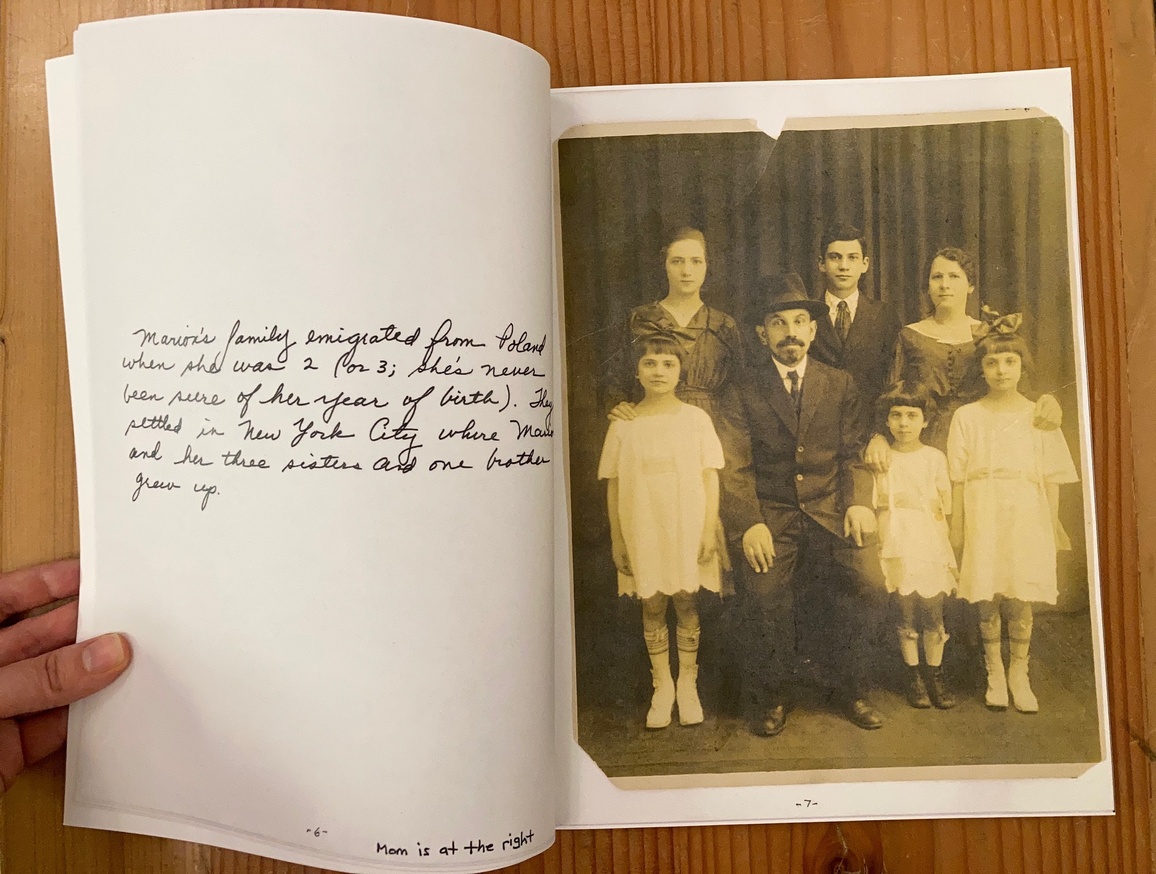 Marion's family emigrated from Poland
when she was 2 (or 3; she's never
been sure of her year of birth). They
settled in New York City where
and her three sisters and one brother
grew up.
-6-
Mom is at the right
-7-